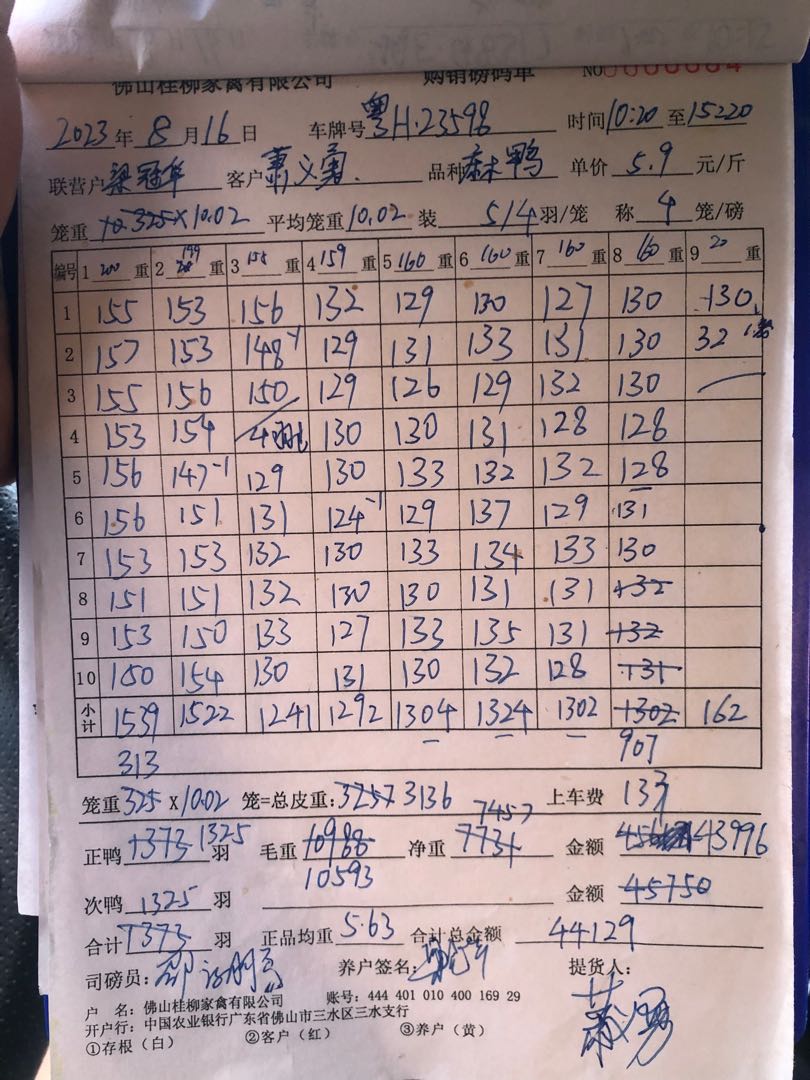 佛山桂柳家禽有限公司 购销磅码单 NO
2023年8月16日 车牌号粤H·23598 时间10:20至15220
联营户梁冠华 客户萧义勇 品种麻鸭 单价5.9元/斤
笼重325×10.02 平均笼重10.02 装5/4羽/笼 称4笼/磅
编号 1 200 重 2 199 重 3 155 重 4 159 重 5 160 重 6 160 重 7 160 重 8 160 重 9 20 重
1 155 153 156 132 129 130 127 130 130
2 157 153 148-1 129 131 133 131 130 32
3 155 156 150 129 126 129 132 130
4 153 154 4羽 130 130 131 128 128
5 156 147-1 129 130 133 132 132 128
6 156 151 131 124-1 129 137 129 131
7 153 153 132 130 133 134 133 130
8 151 151 132 130 130 131 131 132
9 153 150 133 127 133 135 131 132
10 150 154 130 131 130 132 128 131
小计 1539 1522 1241 1292 1304 1324 1302 1302 162
313 907
笼重325×10.02 笼=总皮重:3257 3136 上车费 133
7457
正鸭1373 1325羽 毛重10988 净重7731 金额 43996
10593
次鸭1325羽 金额45750
合计1373羽 正品均重5.63 合计总金额44129
司磅员: 养户签名: 提货人:
萧义勇
户 名:佛山桂柳家禽有限公司 账号:444 401 010 400 169 29
开户行:中国农业银行广东省佛山市三水区三水支行
①存根(白) ②客户(红) ③养户(黄)